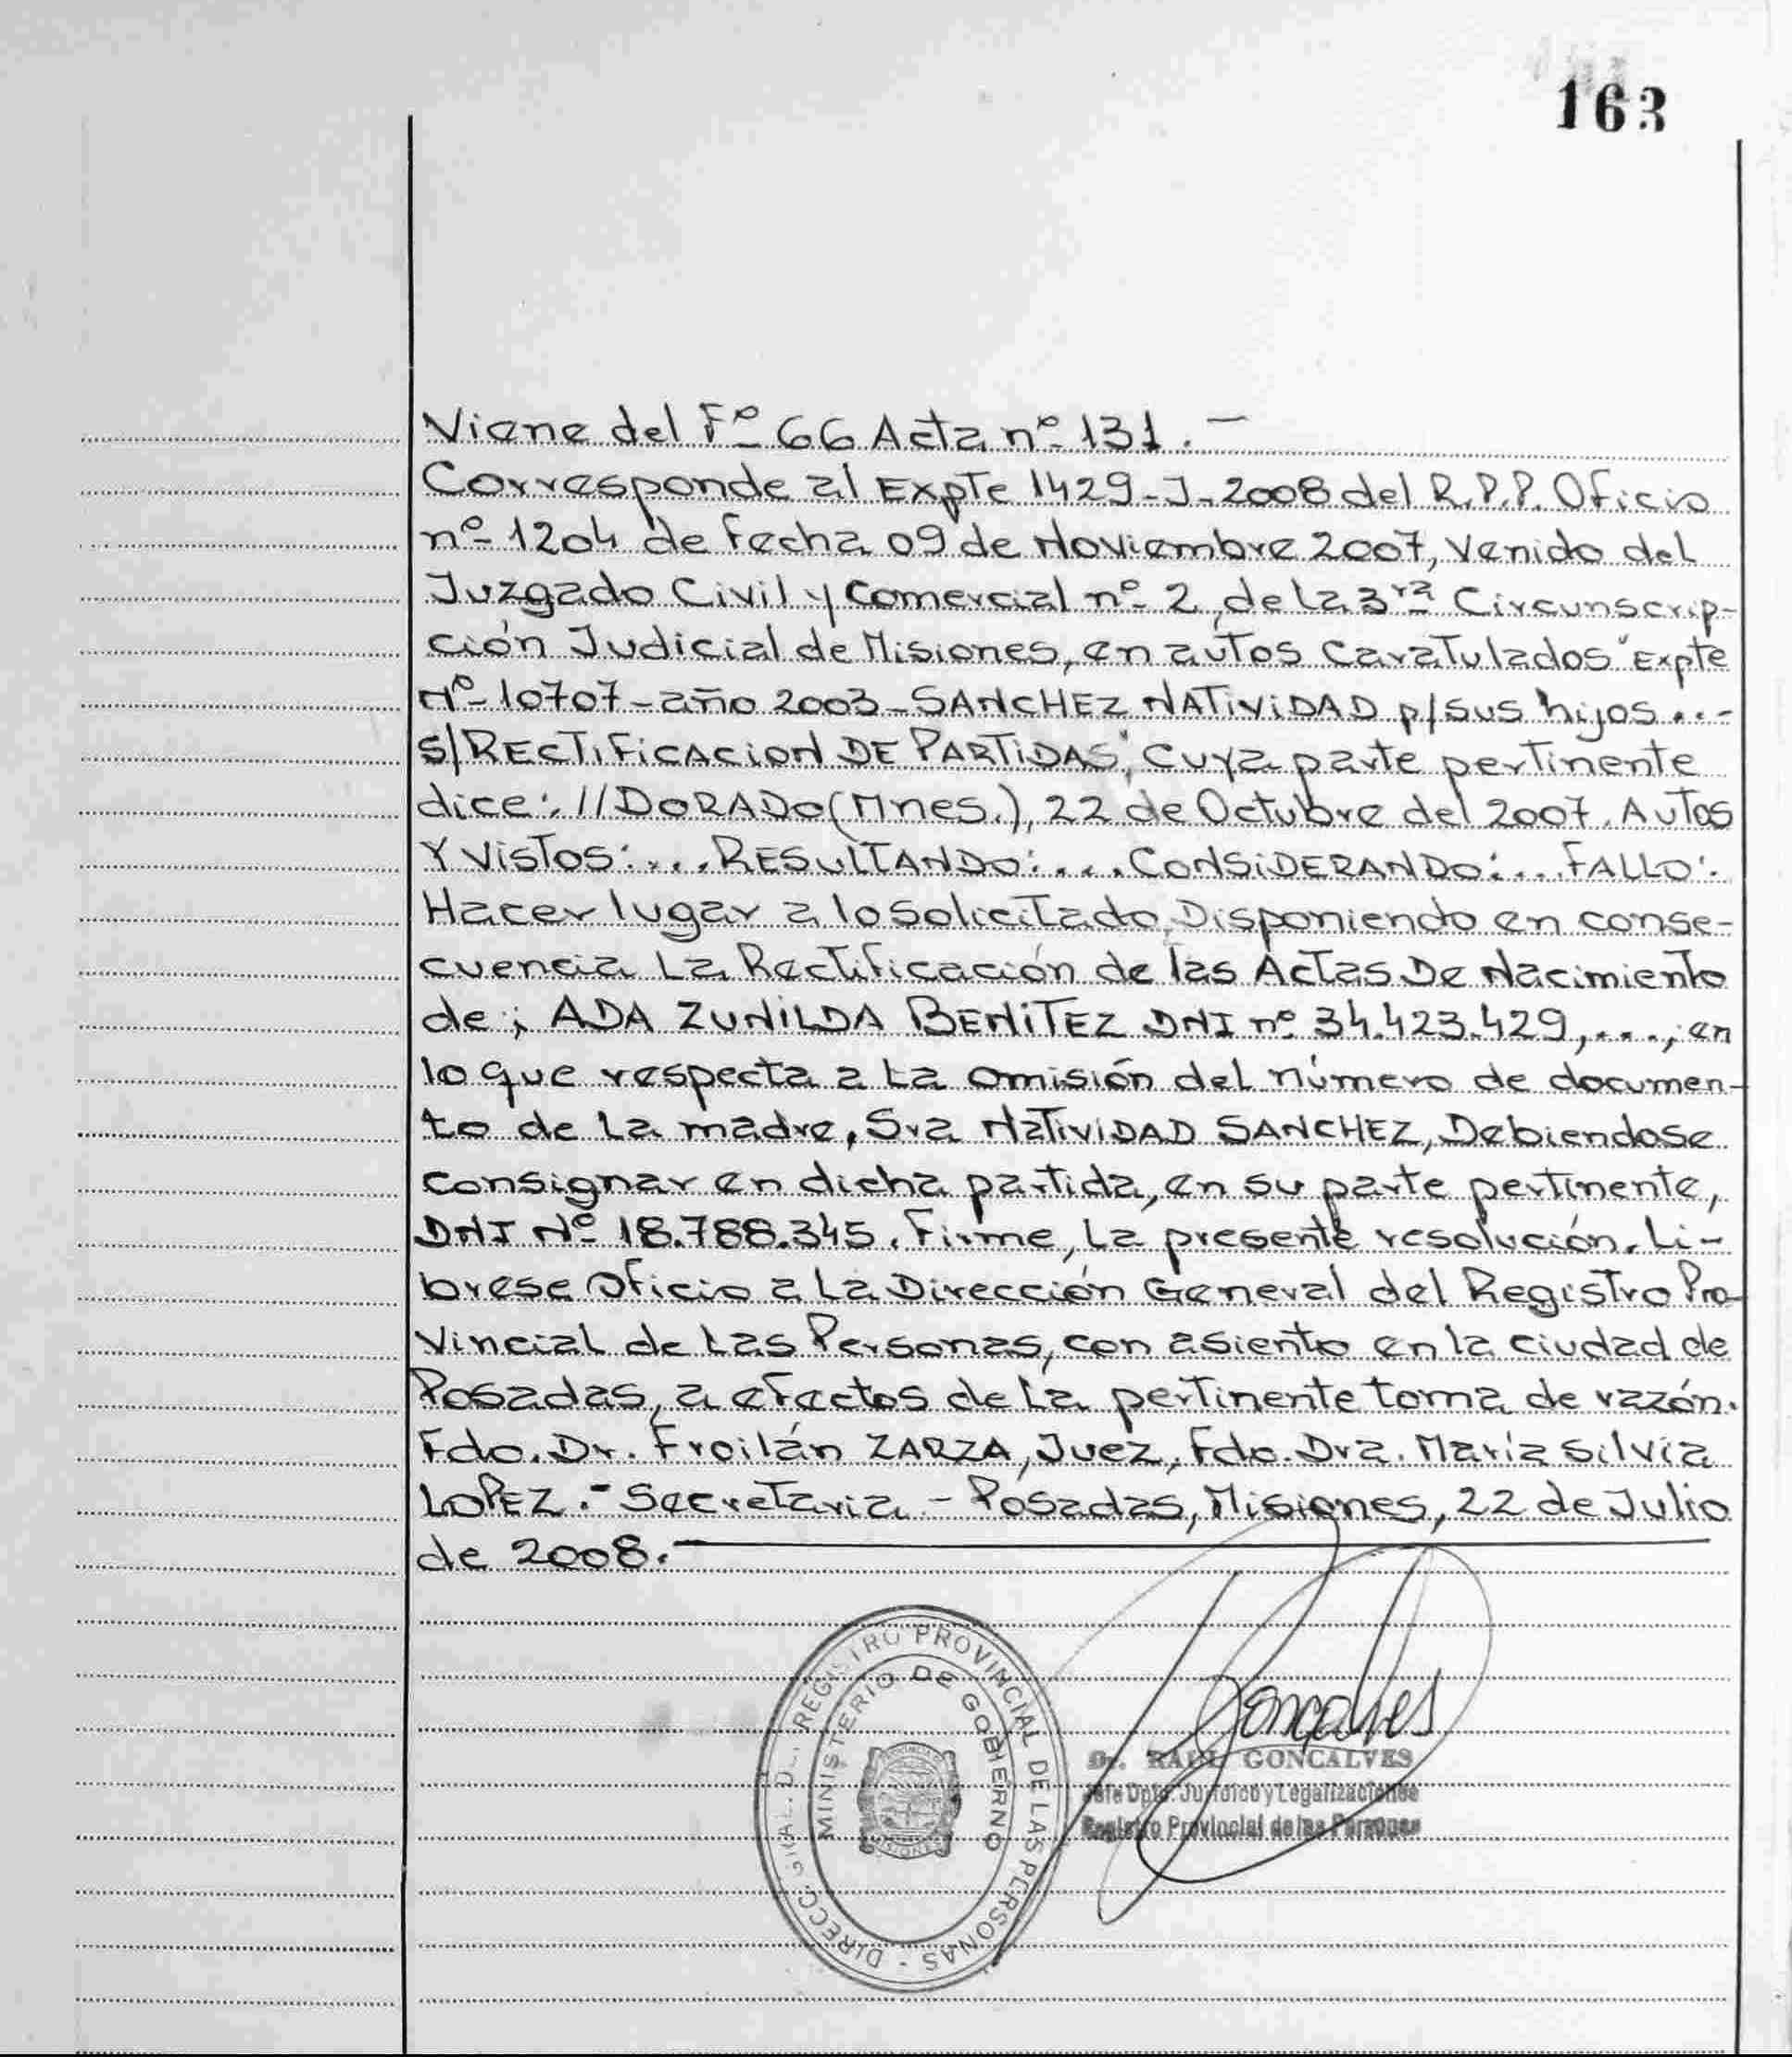 163
Viene del Fº 66 Acta nº 131. —
Corresponde al Expte 1429-J-2008 del R.P.P. Oficio
nº 1204 de fecha 09 de Noviembre 2007, venido del
Juzgado Civil y Comercial nº 2, de la 3ra Circunscrip-
ción Judicial de Misiones, en autos caratulados "Expte
Nº 10707-año 2003-SANCHEZ NATIVIDAD p/sus hijos...-
S/RECTIFICACION DE PARTIDAS", Cuya parte pertinente
dice: //DORADO (Mnes.), 22 de Octubre del 2007. Autos
Y Vistos:.... RESULTANDO:.... CONSIDERANDO:... FALLO:
Hacer lugar a lo solicitado, Disponiendo en conse-
cuencia La Rectificación de las Actas De Nacimiento
de; ADA ZUNILDA BENITEZ DNI nº 34.423.429,....; en
lo que respecta a La omisión del número de documen-
to de La madre, Sra NATIVIDAD SANCHEZ, Debiendose
consignar en dicha partida, en su parte pertinente,
DNI Nº 18.788.345. Firme, La presente resolución. Li-
brese Oficio a La Dirección General del Registro Pro-
Vincial de Las Personas, con asiento en la ciudad de
Posadas, a efectos de La pertinente toma de razón.
Fdo. Dr. Froilán ZARZA, Juez, Fdo. Dra. María Silvia
LOPEZ.- Secretaria - Posadas, Misiones, 22 de Julio
de 2008.
DIRECC. GRAL. DEL REGISTRO PROVINCIAL DE LAS PERSONAS -
MINISTERIO DE GOBIERNO
Goncalves
Dr. RAUL GONCALVES
Jefe Dpto. Jurídico y Legalizaciones
Registro Provincial de las Personas